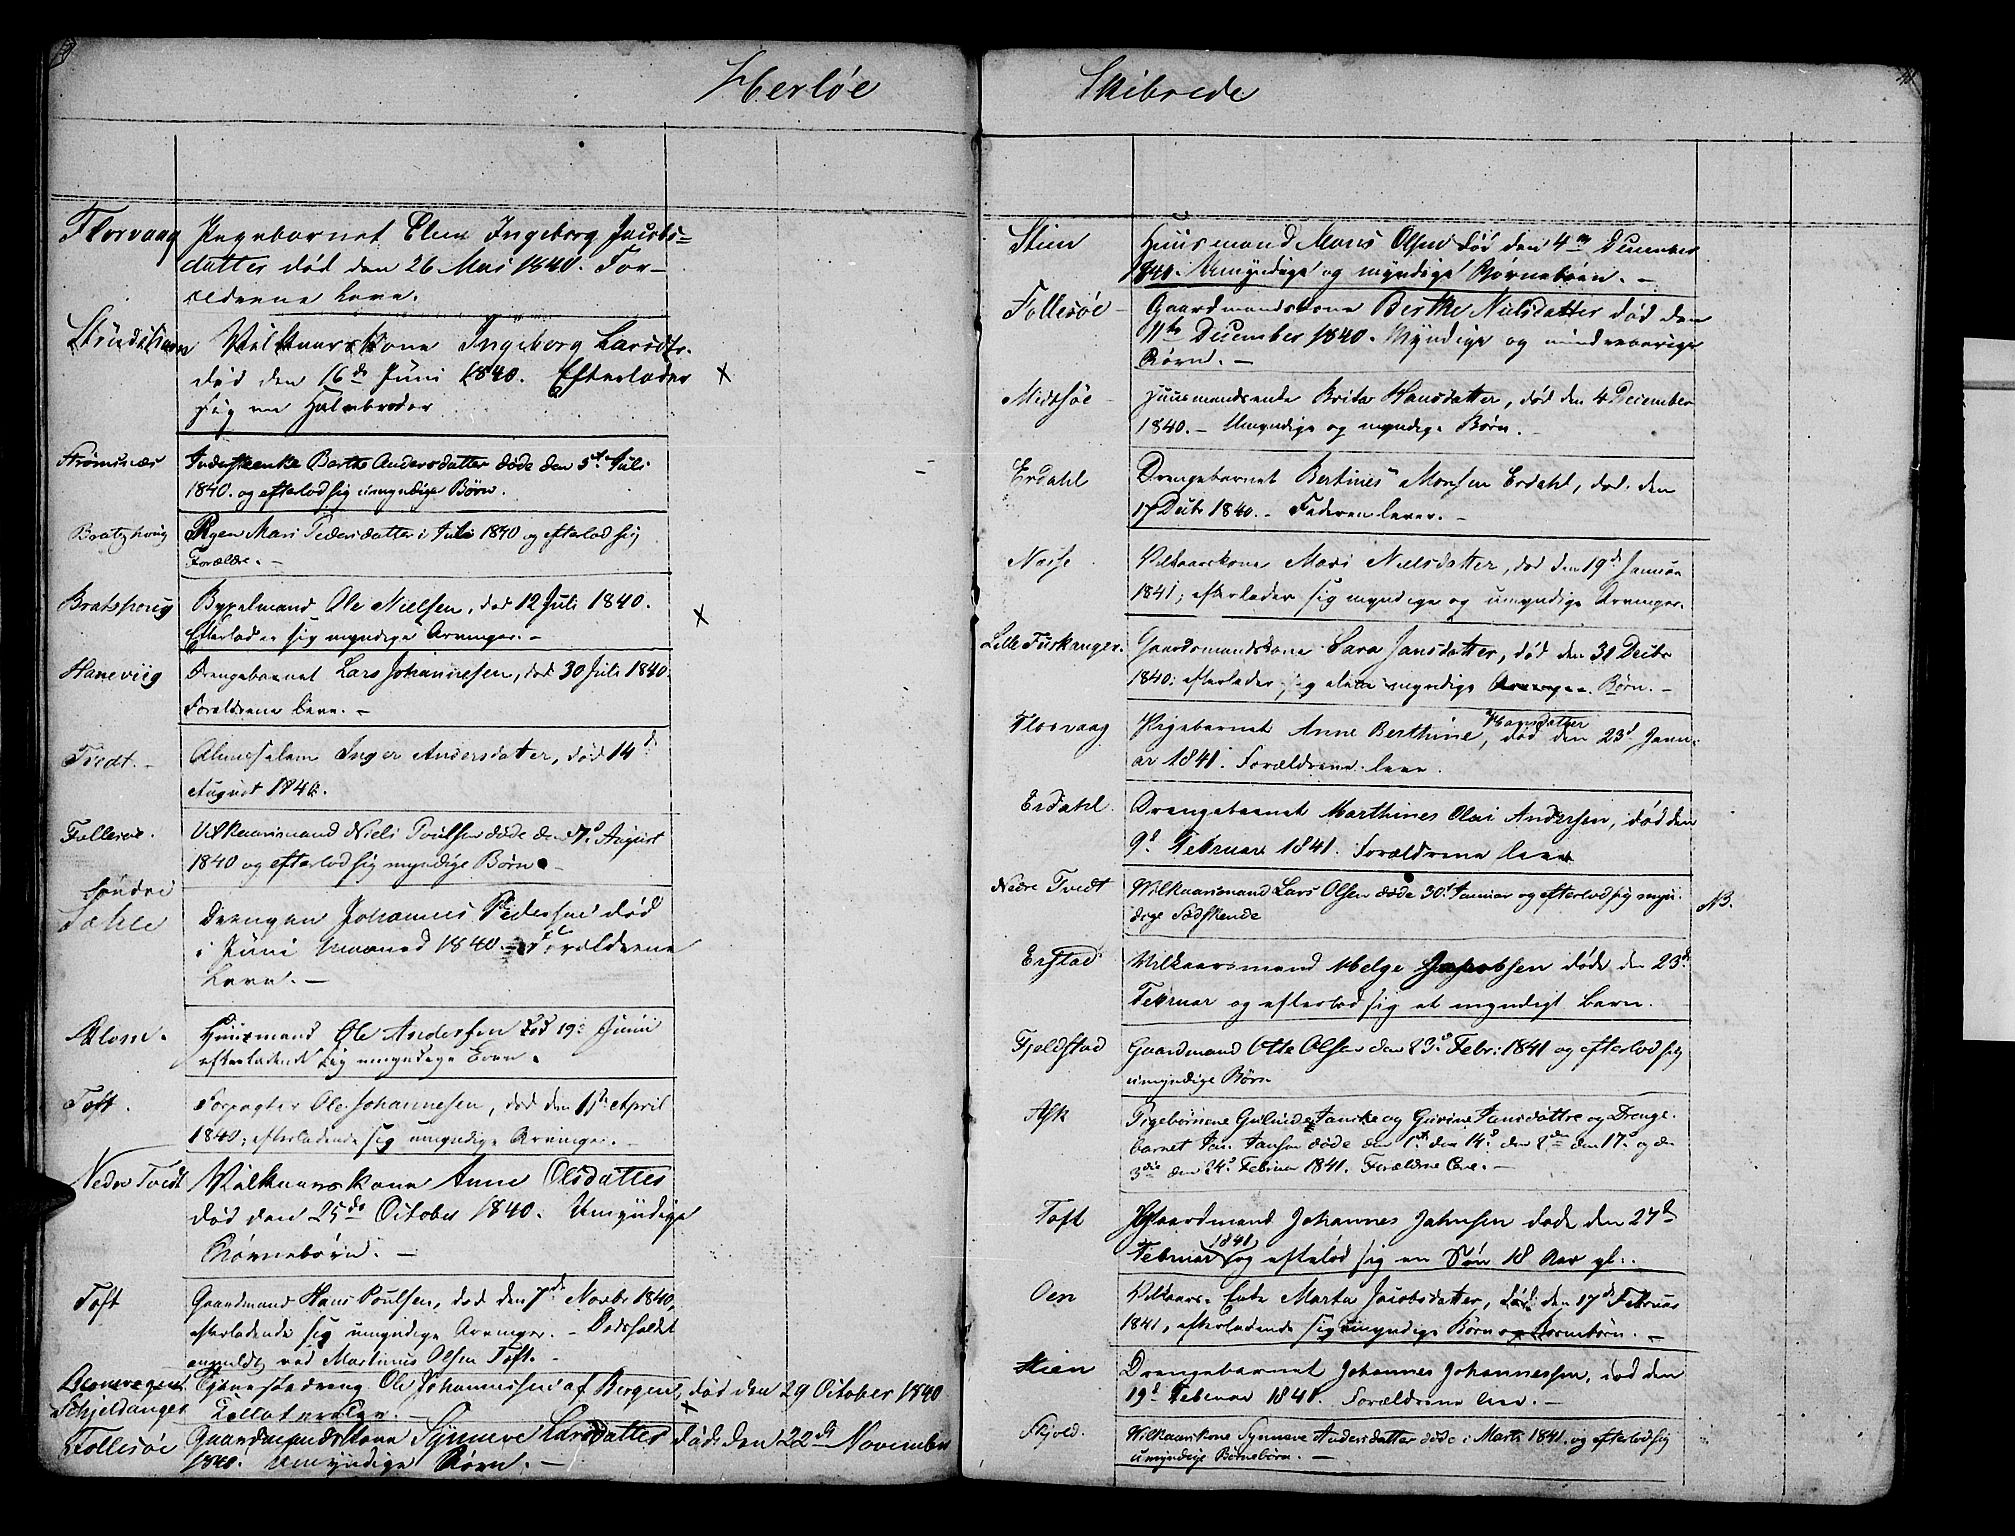 Herløe
Florvaag Pigebarnet Elen Ingeborg Jacobs=
datter død den 26 Mai 1840. For-
ældrene leve.
Vilkaarskone Ingeborg Larsdtr.
død den 16de Juni 1840. Efterlader X
sig en Halvbroder
Strømsnæs Inderstenke Berthe Andersdatter døde den 5te Juli
1840. og efterlod sig umyndige Børn.
Bratshoug Pigen Mari Pedersdatter i Juli 1840 og efterlod sig
Forældre. -
Bratshoug Bygselmand Ole Nielsen, død 12 Juli 1840. X
Efterlader sig myndige Arvinger. -
Haneviig Drengebarnet Lars Johannesen, død 30 Juli 1840.
Forældrene leve. -
Tvedt. - Almisselem Inger Andersdatter, død 14 d.
August 1840.
Follesøe. Vilkaarsmand Niels Poulsen døde den August
1840 og efterlod sig myndige Børn. -
Søndre
Sæhle Drengen Johannes Pedersen død
i Juni Maaned 1840. - Forældrene
Leve. -
Blom. Huusmand Ole Andersen død 19d Junii
efterladende sig umyndige Børn.
Toft. Forpagter Ole Johannesen, død den April
1840; efterladende sig umyndige Arvinger. -
Nedre Tvedt Vilkaarskone Anne Olsdatter
død den 25de October 1840. Umyndige
Børnebørn. -
Toft Gaardmand Hans Poulsen, død den 7de Novbr 1840,
efterladende sig umyndige Arvinger. - Dødsfaldet
anmeldt ved Martinus Olsen Toft. -
Tjenestedreng Ole Johannesen af Bergen, død den 29 October 1840
Schjeldanger X
Follesøe Gaardmandskone Synneve Larsdatter død den 22de November
1840. Umyndige Børn. -
Skibrede
41
Stien Huusmand Mons Olsen død den 4de December
1840. Umyndige og myndige Børnebørn. -
Follesøe - Gaardmandskone Berthe Nielsdatter død den
11te December 1840. Myndige og mindreaarige
Børn. -
Midtsøe - Huusmandsenke Brita Hansdatter, død den 4 December
1840. - Umyndige og myndige Børn. -
Erdahl Drengebarnet Bertines Monsen Erdahl, død den
17 Decbr 1840. - Faderen lever. -
Nesse Vilkaarskone Mari Nielsdatter, død den 19de Januar
1841; efterlader sig myndige og umyndige Arvinger.
Lille Turkanger. Gaardsmandskone Sara Jansdatter, død den 31 Decbr
1840. efterlader sig alene myndige Arvinger. Børn. -
Hansdatter
Florvaag Pigebarnet Anne Berthine, død den 23d Janu-
ar 1841. Forældrene leve.
Erdahl. Drengebarnet Marthines Olai Andersen, død den
9d Februar 1841. Forældrene leve
Nedre Tvedt Vilkaarsmand Lars Olsen døde 30te Januar og efterlod sig myn-
dige Sødskende NB.
Erstad Vilkaarsmand Helge Jacobsen døde den 23de
Februar og efterlod sig et myndigt Barn.
Fjeldstad Gaardmand Otte Olsen den 23d Febr: 1841 og efterlod sig
umyndige Børn
Ask Pigebørnene og Jansdøttre og Drenge-
barnet Jan Jansen døde den 1ste den 14d den 2den den 17d og den
3die den 24d Februar 1841. Forældrene leve. -
Toft Gaardmand Johannes Jahnsen døde den 27de
Februar 1841 og efterlod sig en Søn 18 Aar gl:.
Oen Vilkaars-Enke Marta Jacobsdatter, død den 17de Februar
1841, efterladende sig umyndige Børn og Børnebørn. -
Stien Drengebarnet Johannes Johannessen, død den
19d Februar 1841. Forældrene leve. -
Skjold. Vilkaarskone Synneve Andersdatter døde i Marts 1841. og efterlod sig
umyndige Børnebørn. -